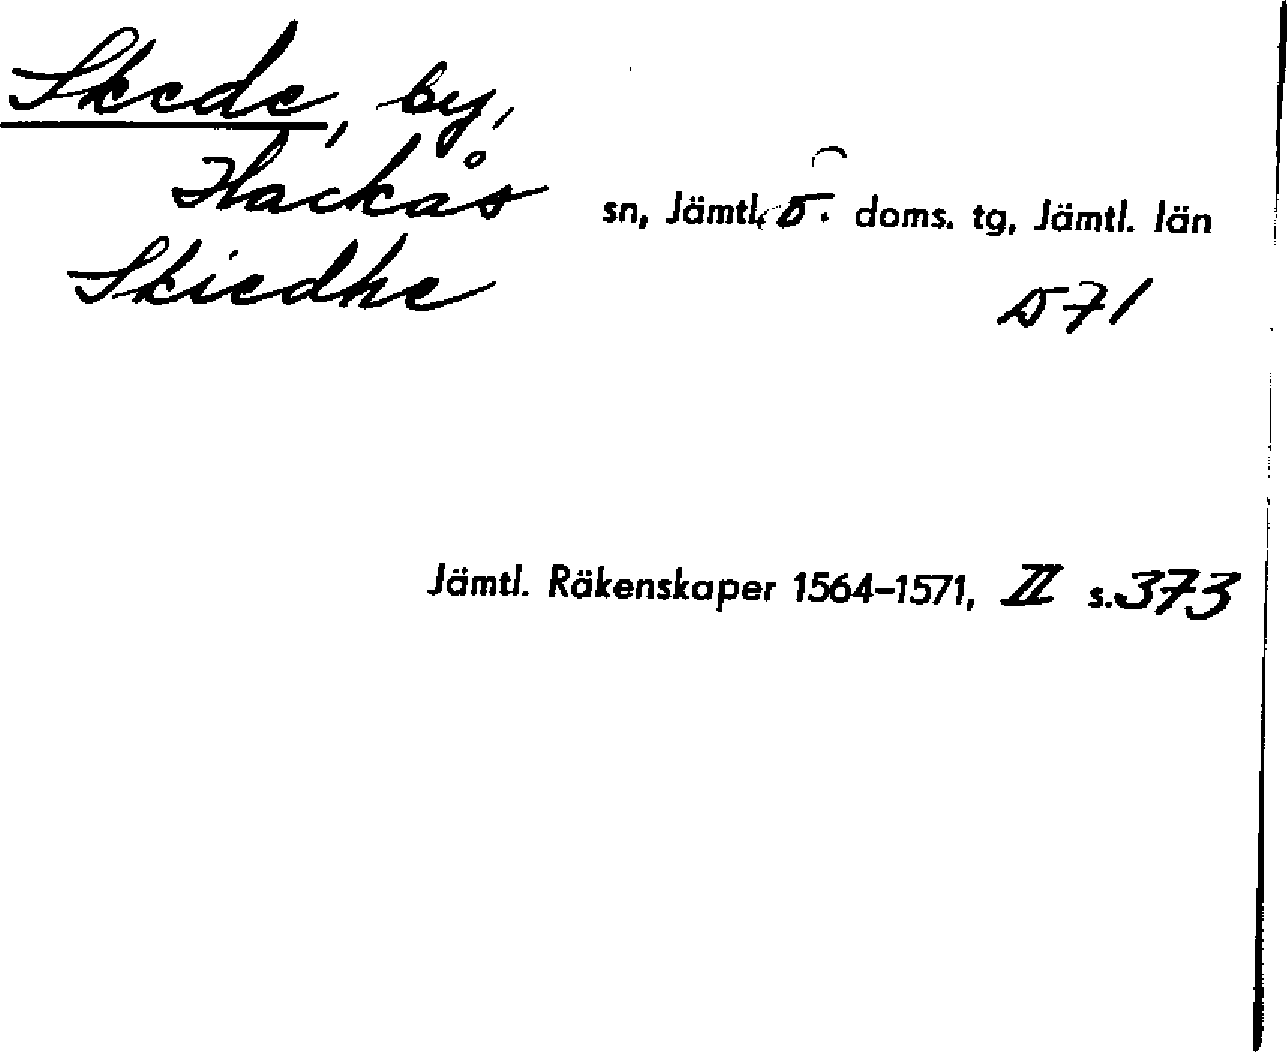 Skede, by,
Hackås sn, Jämtl. s. doms. tg, Jämtl. län
Skiedhe 571
Jämtl. Räkenskaper 1564–1571, II s. 373